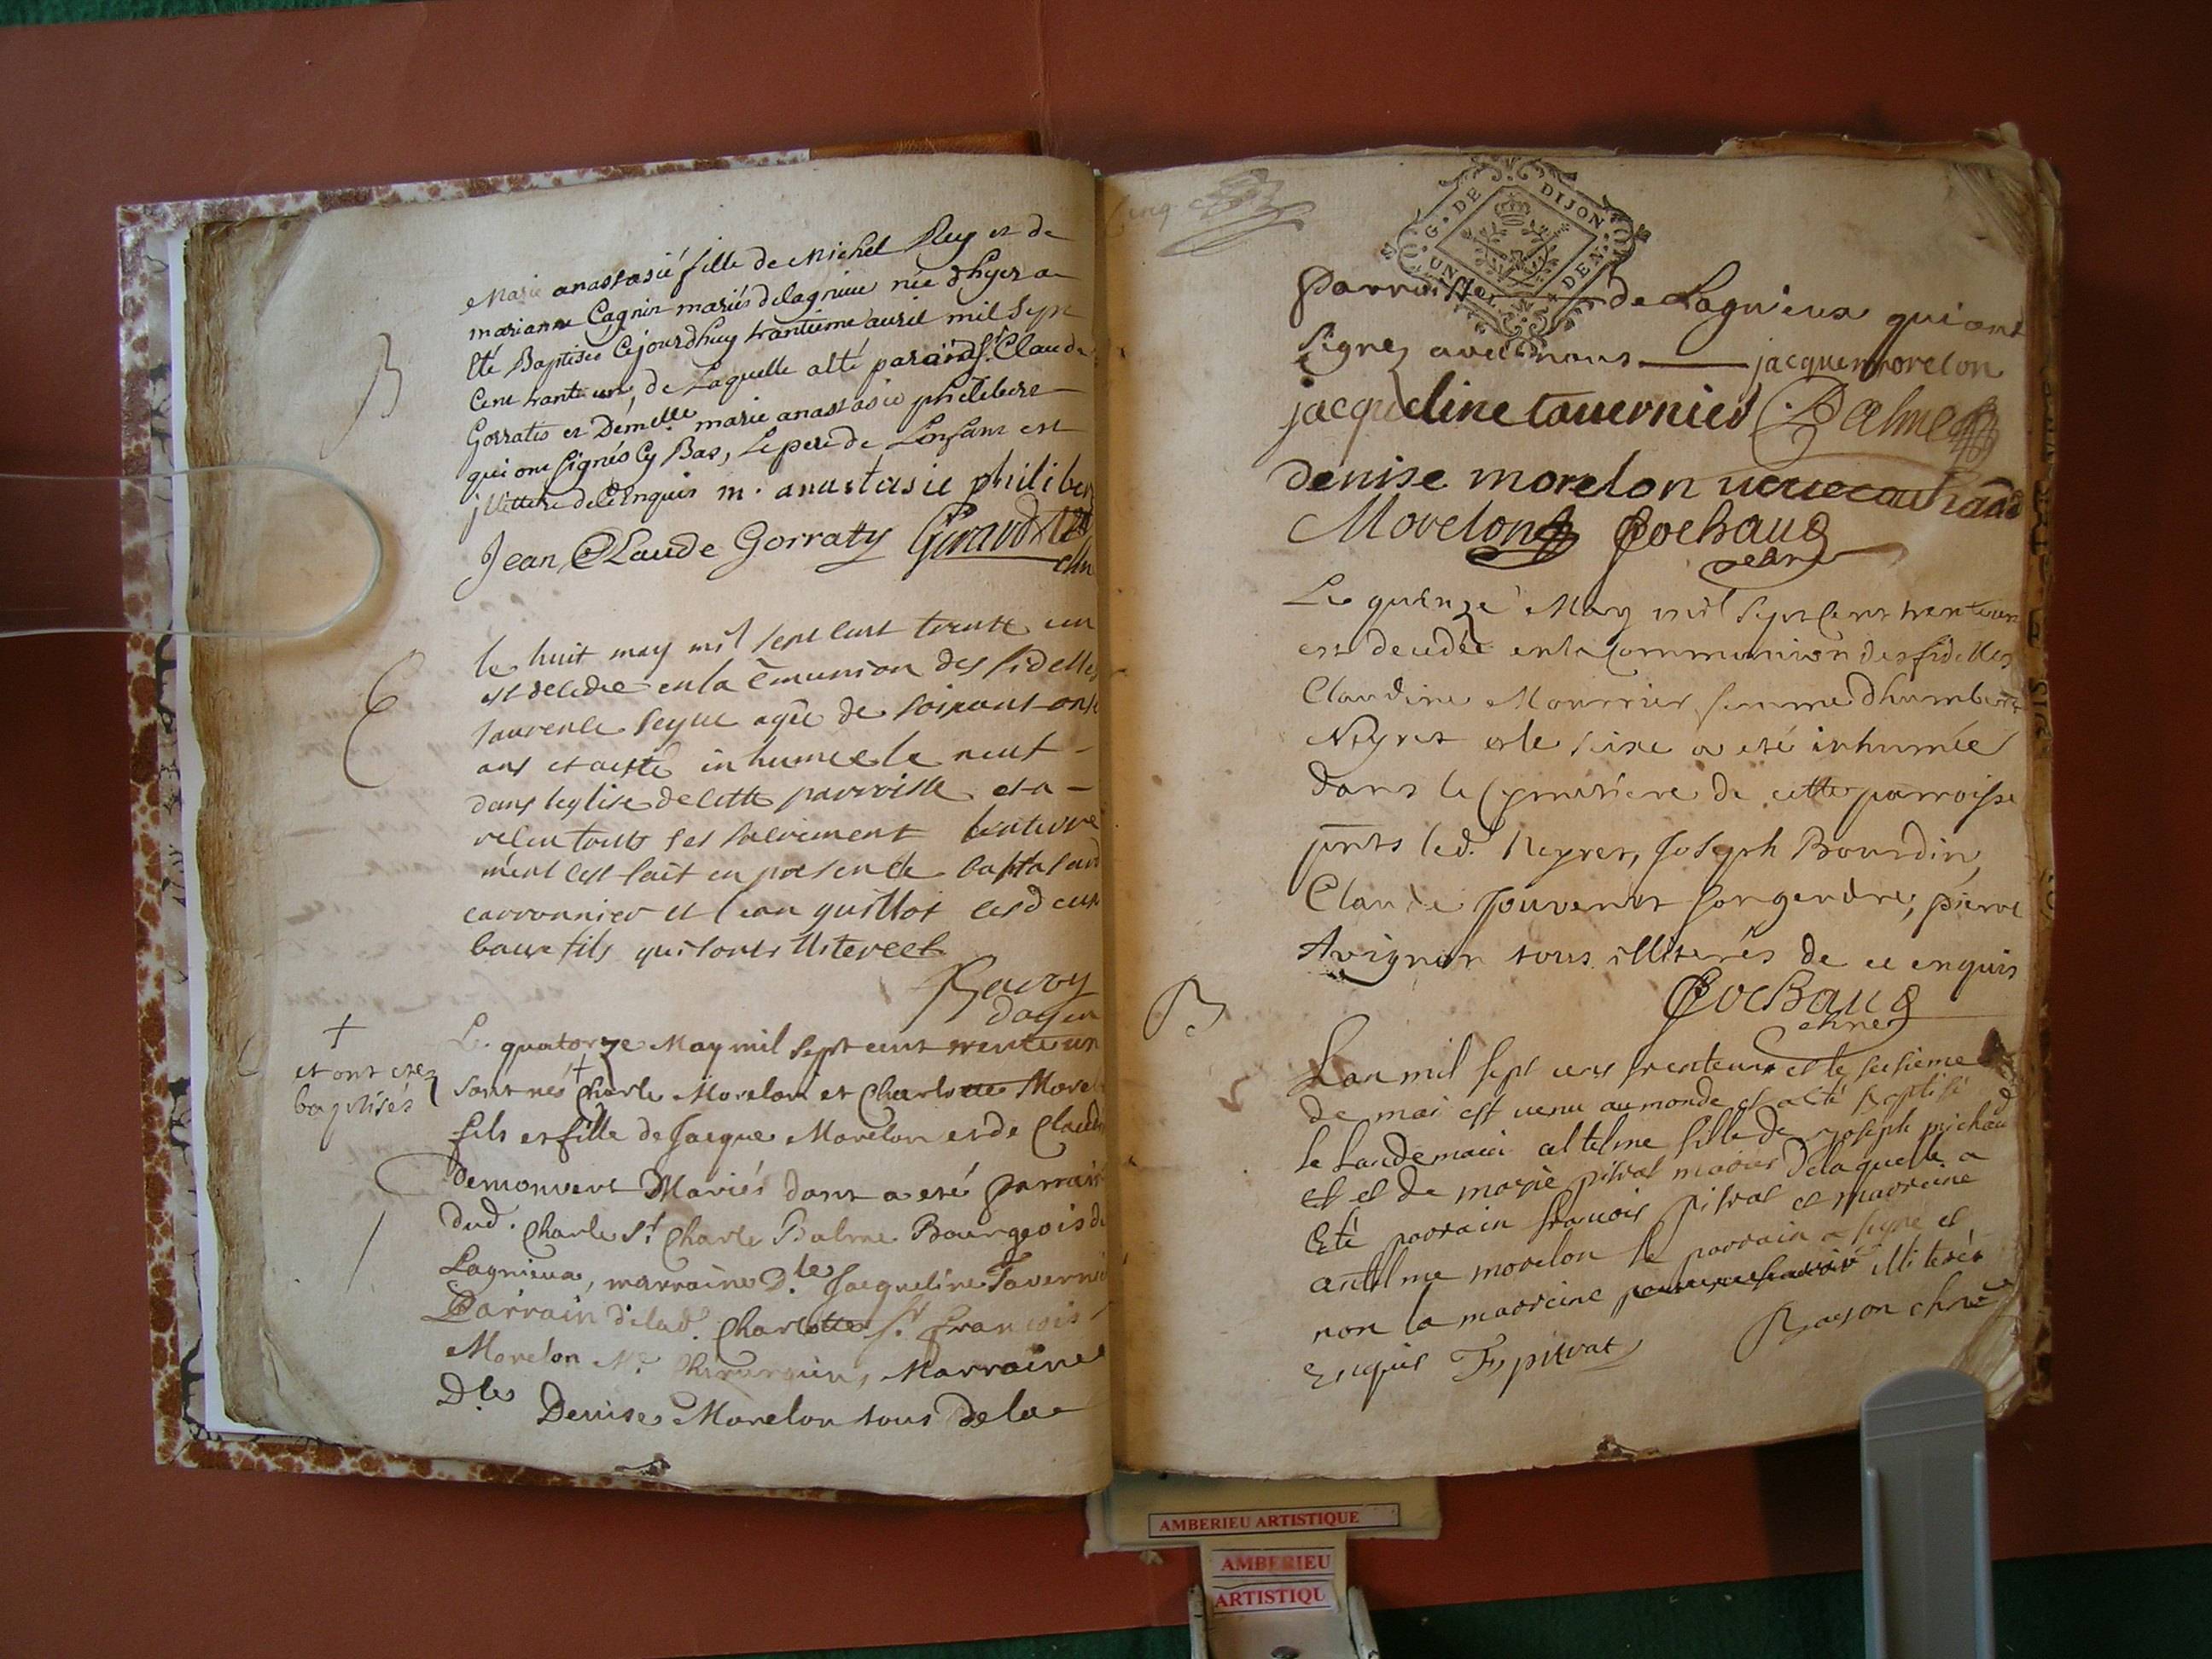 B
Marie anastasié fille de Michel Rey et de
marianne Cagnin mariés delagnieu née d'hyer a
Eté Baptisée Cejourdhuy trantieme auril mil Sept
Cent trante un, de Laquelle alté parain Sr. Claude
Gorratis et Demelle marie anastasie philibere
qui ont signés Cy Bas, Le pere de Lenfant est
jlletteré de ce Enquis m. anastasie philiber
Jean CLaude Gorraty Giraud
le huit may mil sept cent trente un
est decedie en la cmunion des fidelles
laurence seyue agée de soixant onse
ans et a esté inhumée le neuf
dans leglise de cette parroisse et a
receu touts ses sacrement lenterre
ment cest fait en presence baltasard
carronnier et jean guillot ses deux
baux fils qui sont illitereés
Savoy
doyen
Le quatorze May mil sept cent trente un
+
et ont estez
baptisés
sont nés + Charle Morelon et Charlotte Morel
fils et fille de Jacque Morelon et de Claudi
Demonvert Mariés dont a eté Parrain
dud. Charle Sr. Charle Balme Bourgeois de
Lagnieux, marraine D.le Jacqueline Tavernie
Parrain de lad. Charlotte Sr. francois
Morelon Me. Chirurgien, Marraine
D.le Denise Morelon tous de la
G. DE DIJON
UN DEN.
Parroisse de Lagnieux qui ont
signez avec nous jacque morelon
jacqueline tauernier Balme
denise morelon
Morelon Cochaud
Le quinzé May mil sept cent trente un
est decedée en la Communion des fidelles
Claudine Mourrier femme d'humbert
Neyret et le seize a eté inhumée
dans le Cymetiere de cette parroisse
pnts led. Neyret, Joseph Bourdin,
Claude Jouvenet son gendre, pierre
Avignon tous illiterés de ce enquis
Cochaud
B
Lan mil sept cens trenteun et le sesieme
de mai est uenu au monde et a eté baptisé
le landemain antelme fille de joseph michaud
et et de marie pitrat mariés delaquelle a
Eté parrain francois pitrat et marreine
antelme morelon le parrain a signé et
non la marreine illiterée
enquis F pitrat
AMBERIEU ARTISTIQUE
AMBERIEU
ARTISTIQU